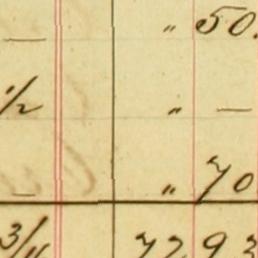 — " 50.
1/2 " —
— " 70
3/4 7293